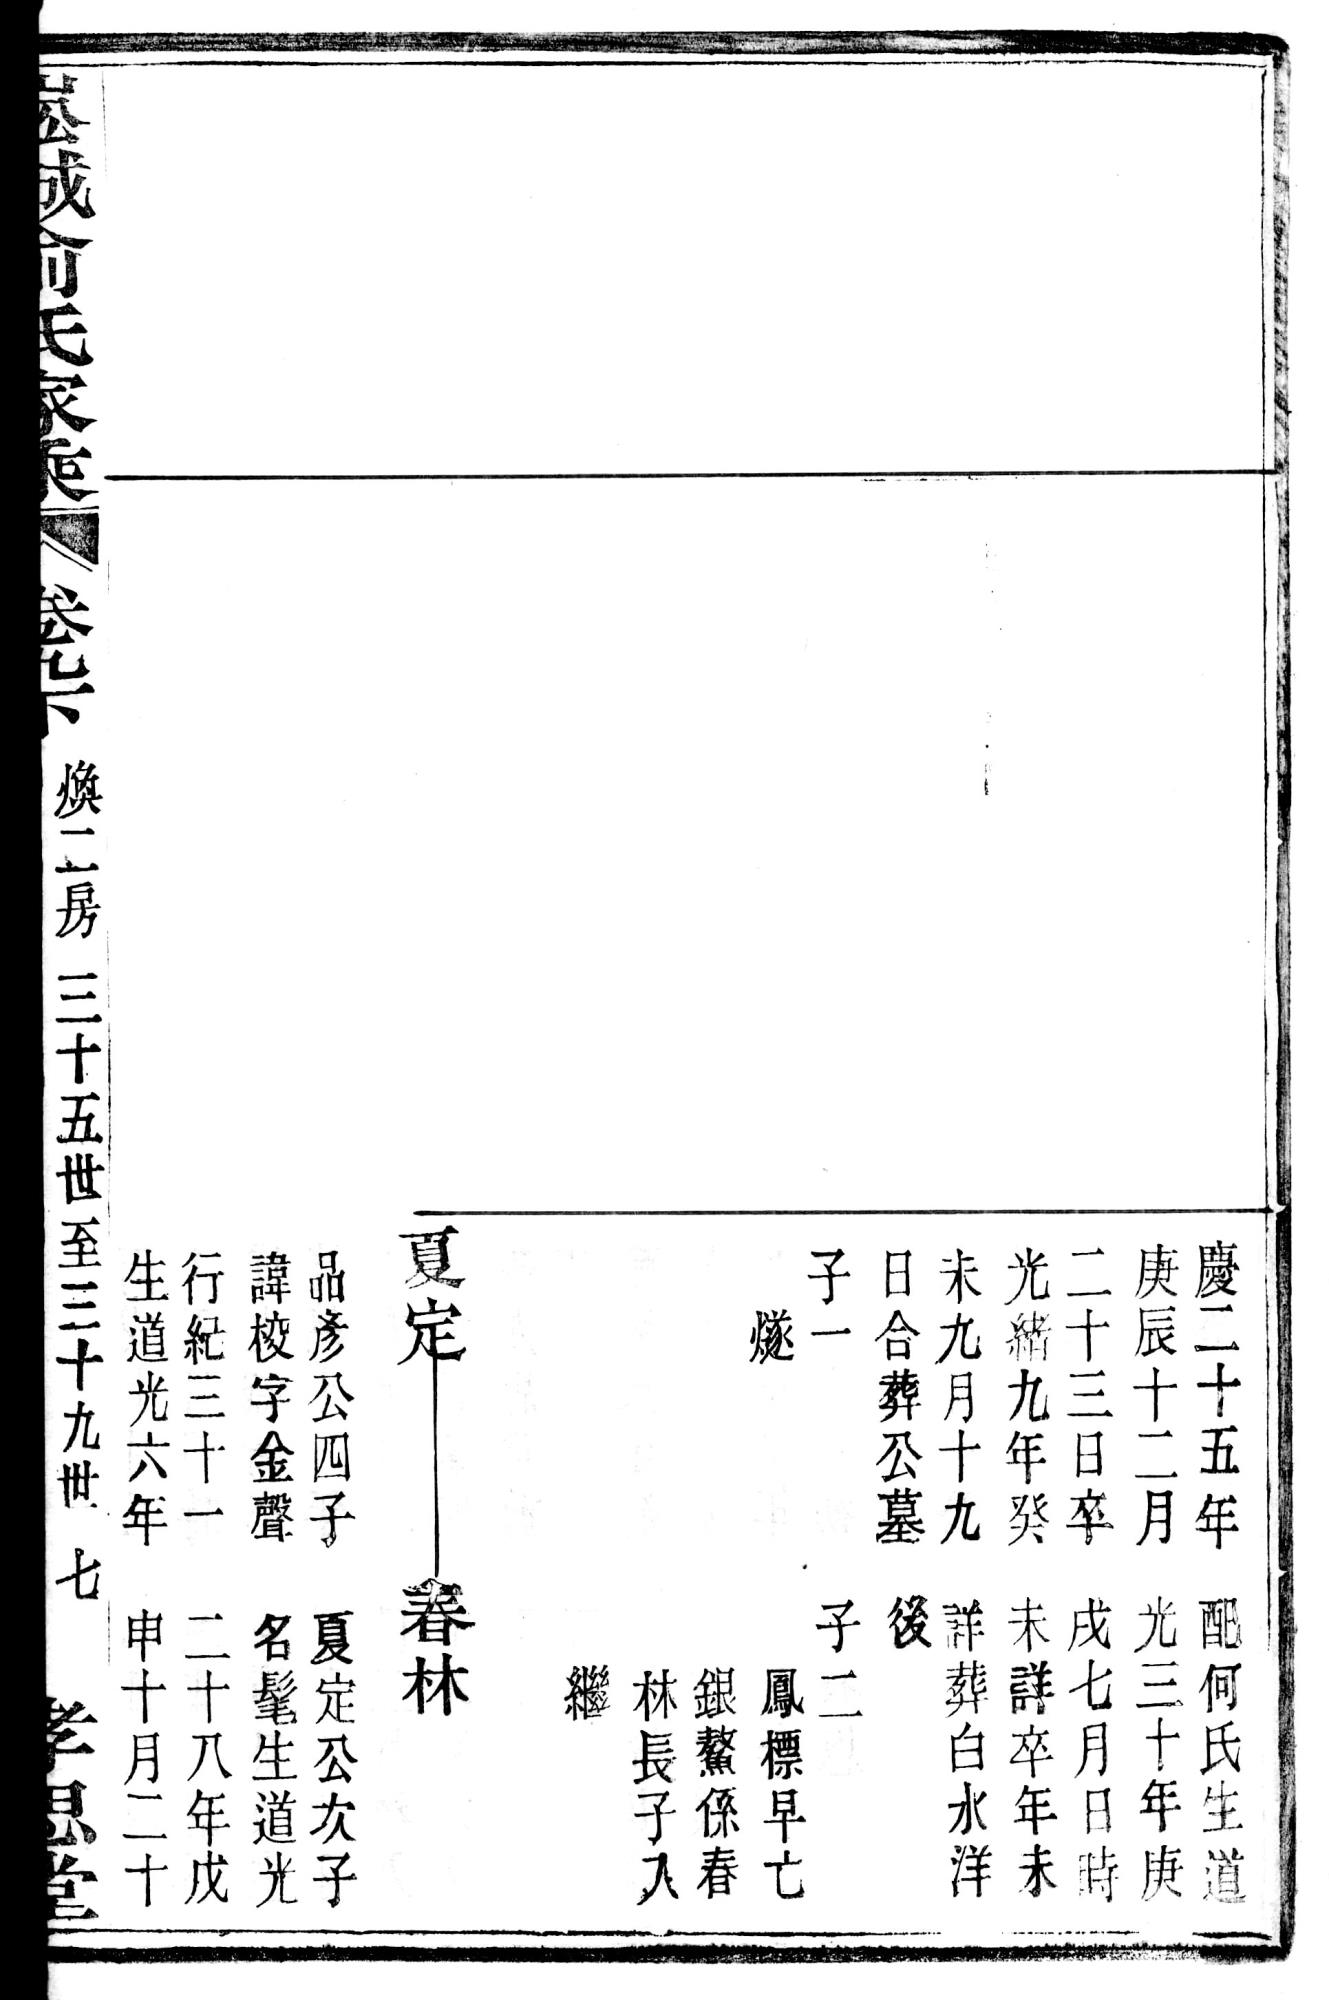 慶二十五年
庚辰十二月
二十三日卒
光緒九年癸
未九月十九
日合葬公墓
子一
燧
配何氏生道
光三十年庚
戌七月日時
未詳卒年未
詳葬白水洋
後
子二
鳳標早亡
銀鰲係春
林長子入
繼
夏定
春林
品彥公四子
諱棱字金聲
行紀三十一
生道光六年
夏定公次子
名髦生道光
二十八年戊
申十月二十
崧城俞氏家乘
卷九下
煥二房 三十五世至三十九世 七
孝思堂